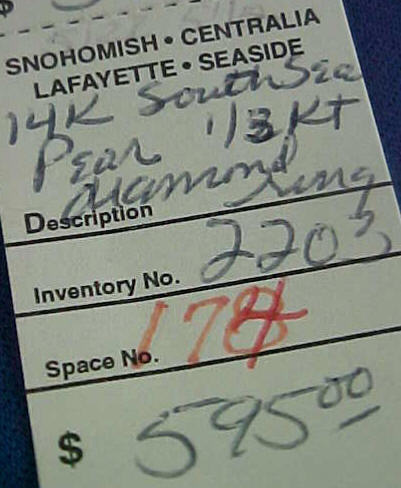 $
SNOHOMISH • CENTRALIA
LAFAYETTE • SEASIDE
14K South Sea
Pear 1/3 KT
diamond ring
Description
Inventory No. 2203
Space No. 174
$ 595.00